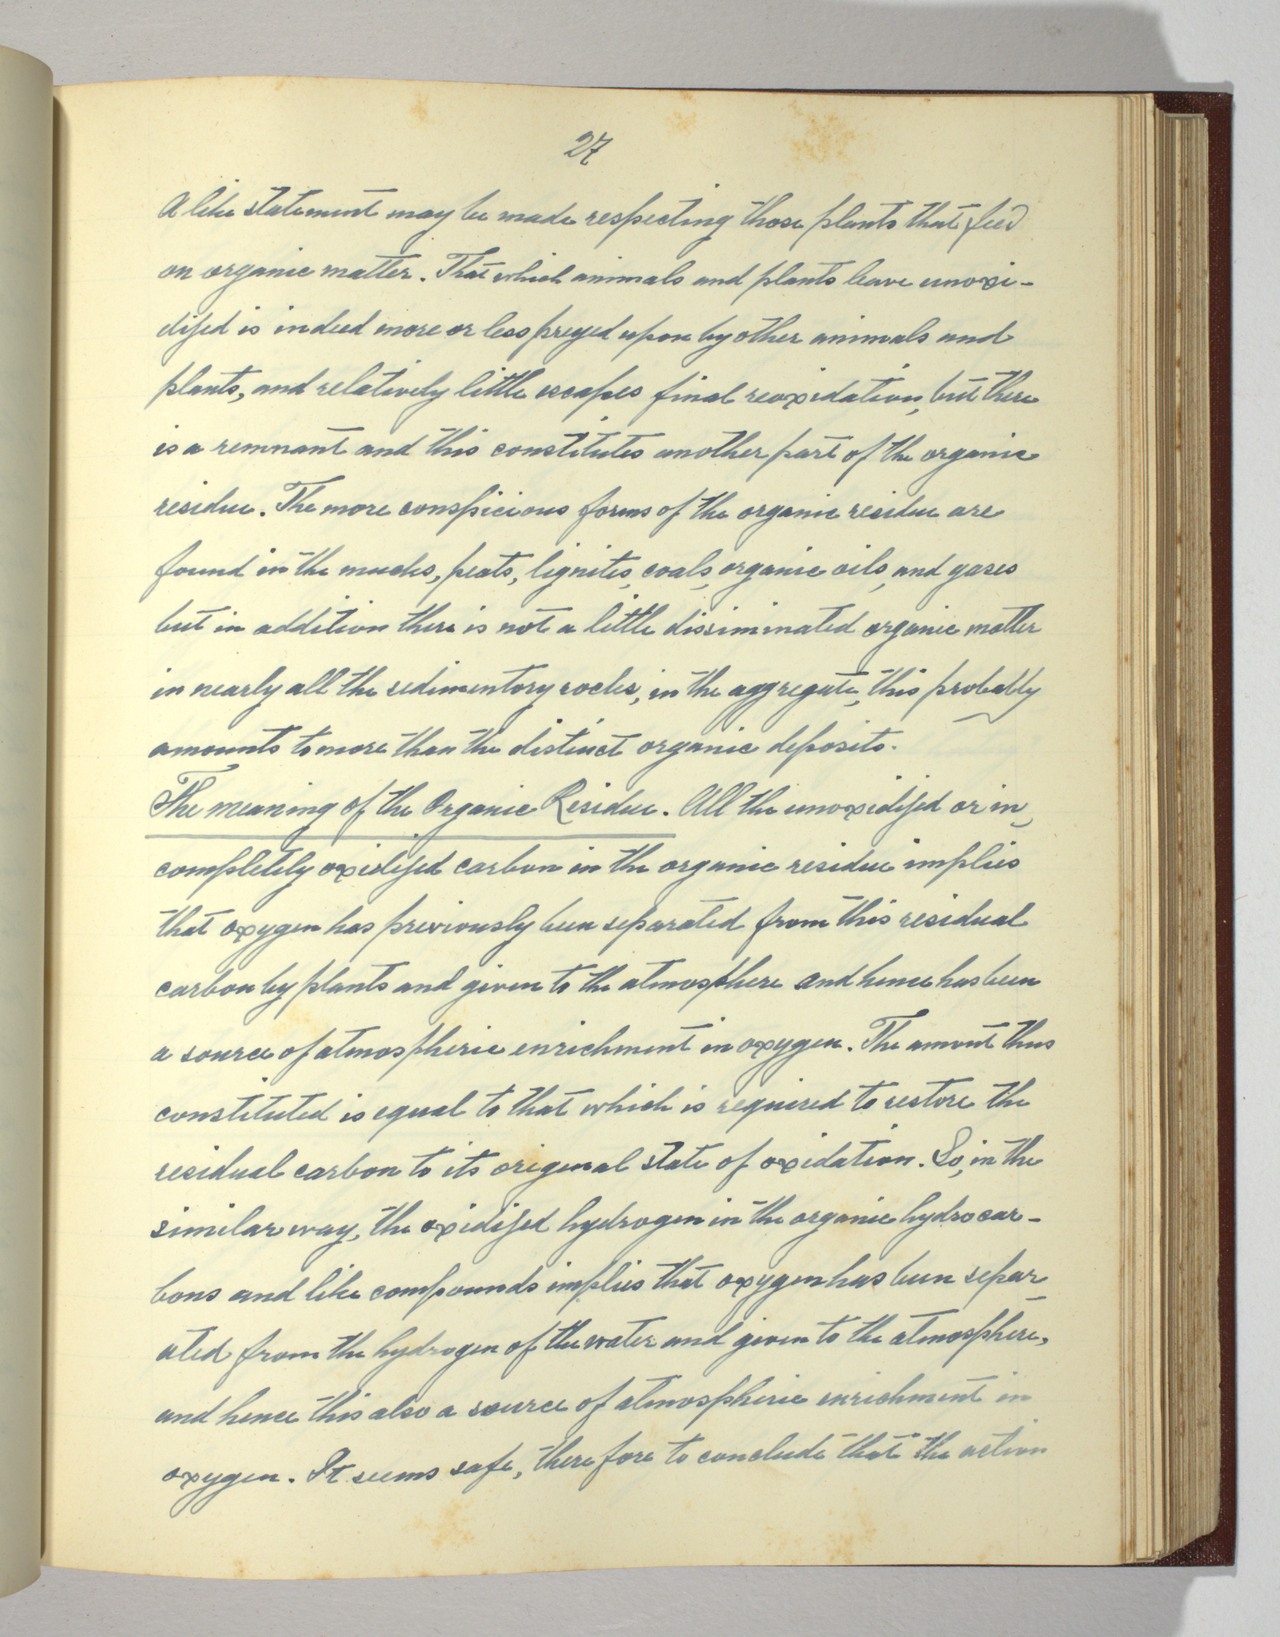 27
A like statement may be made respecting those plants that feed
on organic matter. That which animals and plants leave unoxi-
dised is indeed more or less preyed upon by other animals and
plants, and relatively little escapes final reoxidation, but there
is a remnant and this constitutes another part of the organic
residue. The more conspicious forms of the organic residue are
found in the mucks, peats, lignites, coals, organic oils, and gases
but in addition there is not a little dissiminated organic matter
in nearly all the sedimentory rocks, in the aggregate, this probably
amounts to more than the distinct organic deposits.
The meaning of the Organic Residue. All the unoxidised or in-
completely oxidised carbon in the organic residue implies
that oxygen has previously been separated from this residual
carbon by plants and given to the atmosphere and hence has been
a source of atmospheric enrichment in oxygen. The amount thus
constituted is equal to that which is required to restore the
residual carbon to its original state of oxidation. So, in the
similar way, the oxidised hydrogen in the organic hydrocar-
bons and like compounds implies that oxygen has been separ-
ated from the hydrogen of the water and given to the atmosphere,
and hence this also a source of atmospheric enrichment in
oxygen. It seems safe, therefore to conclude that the action